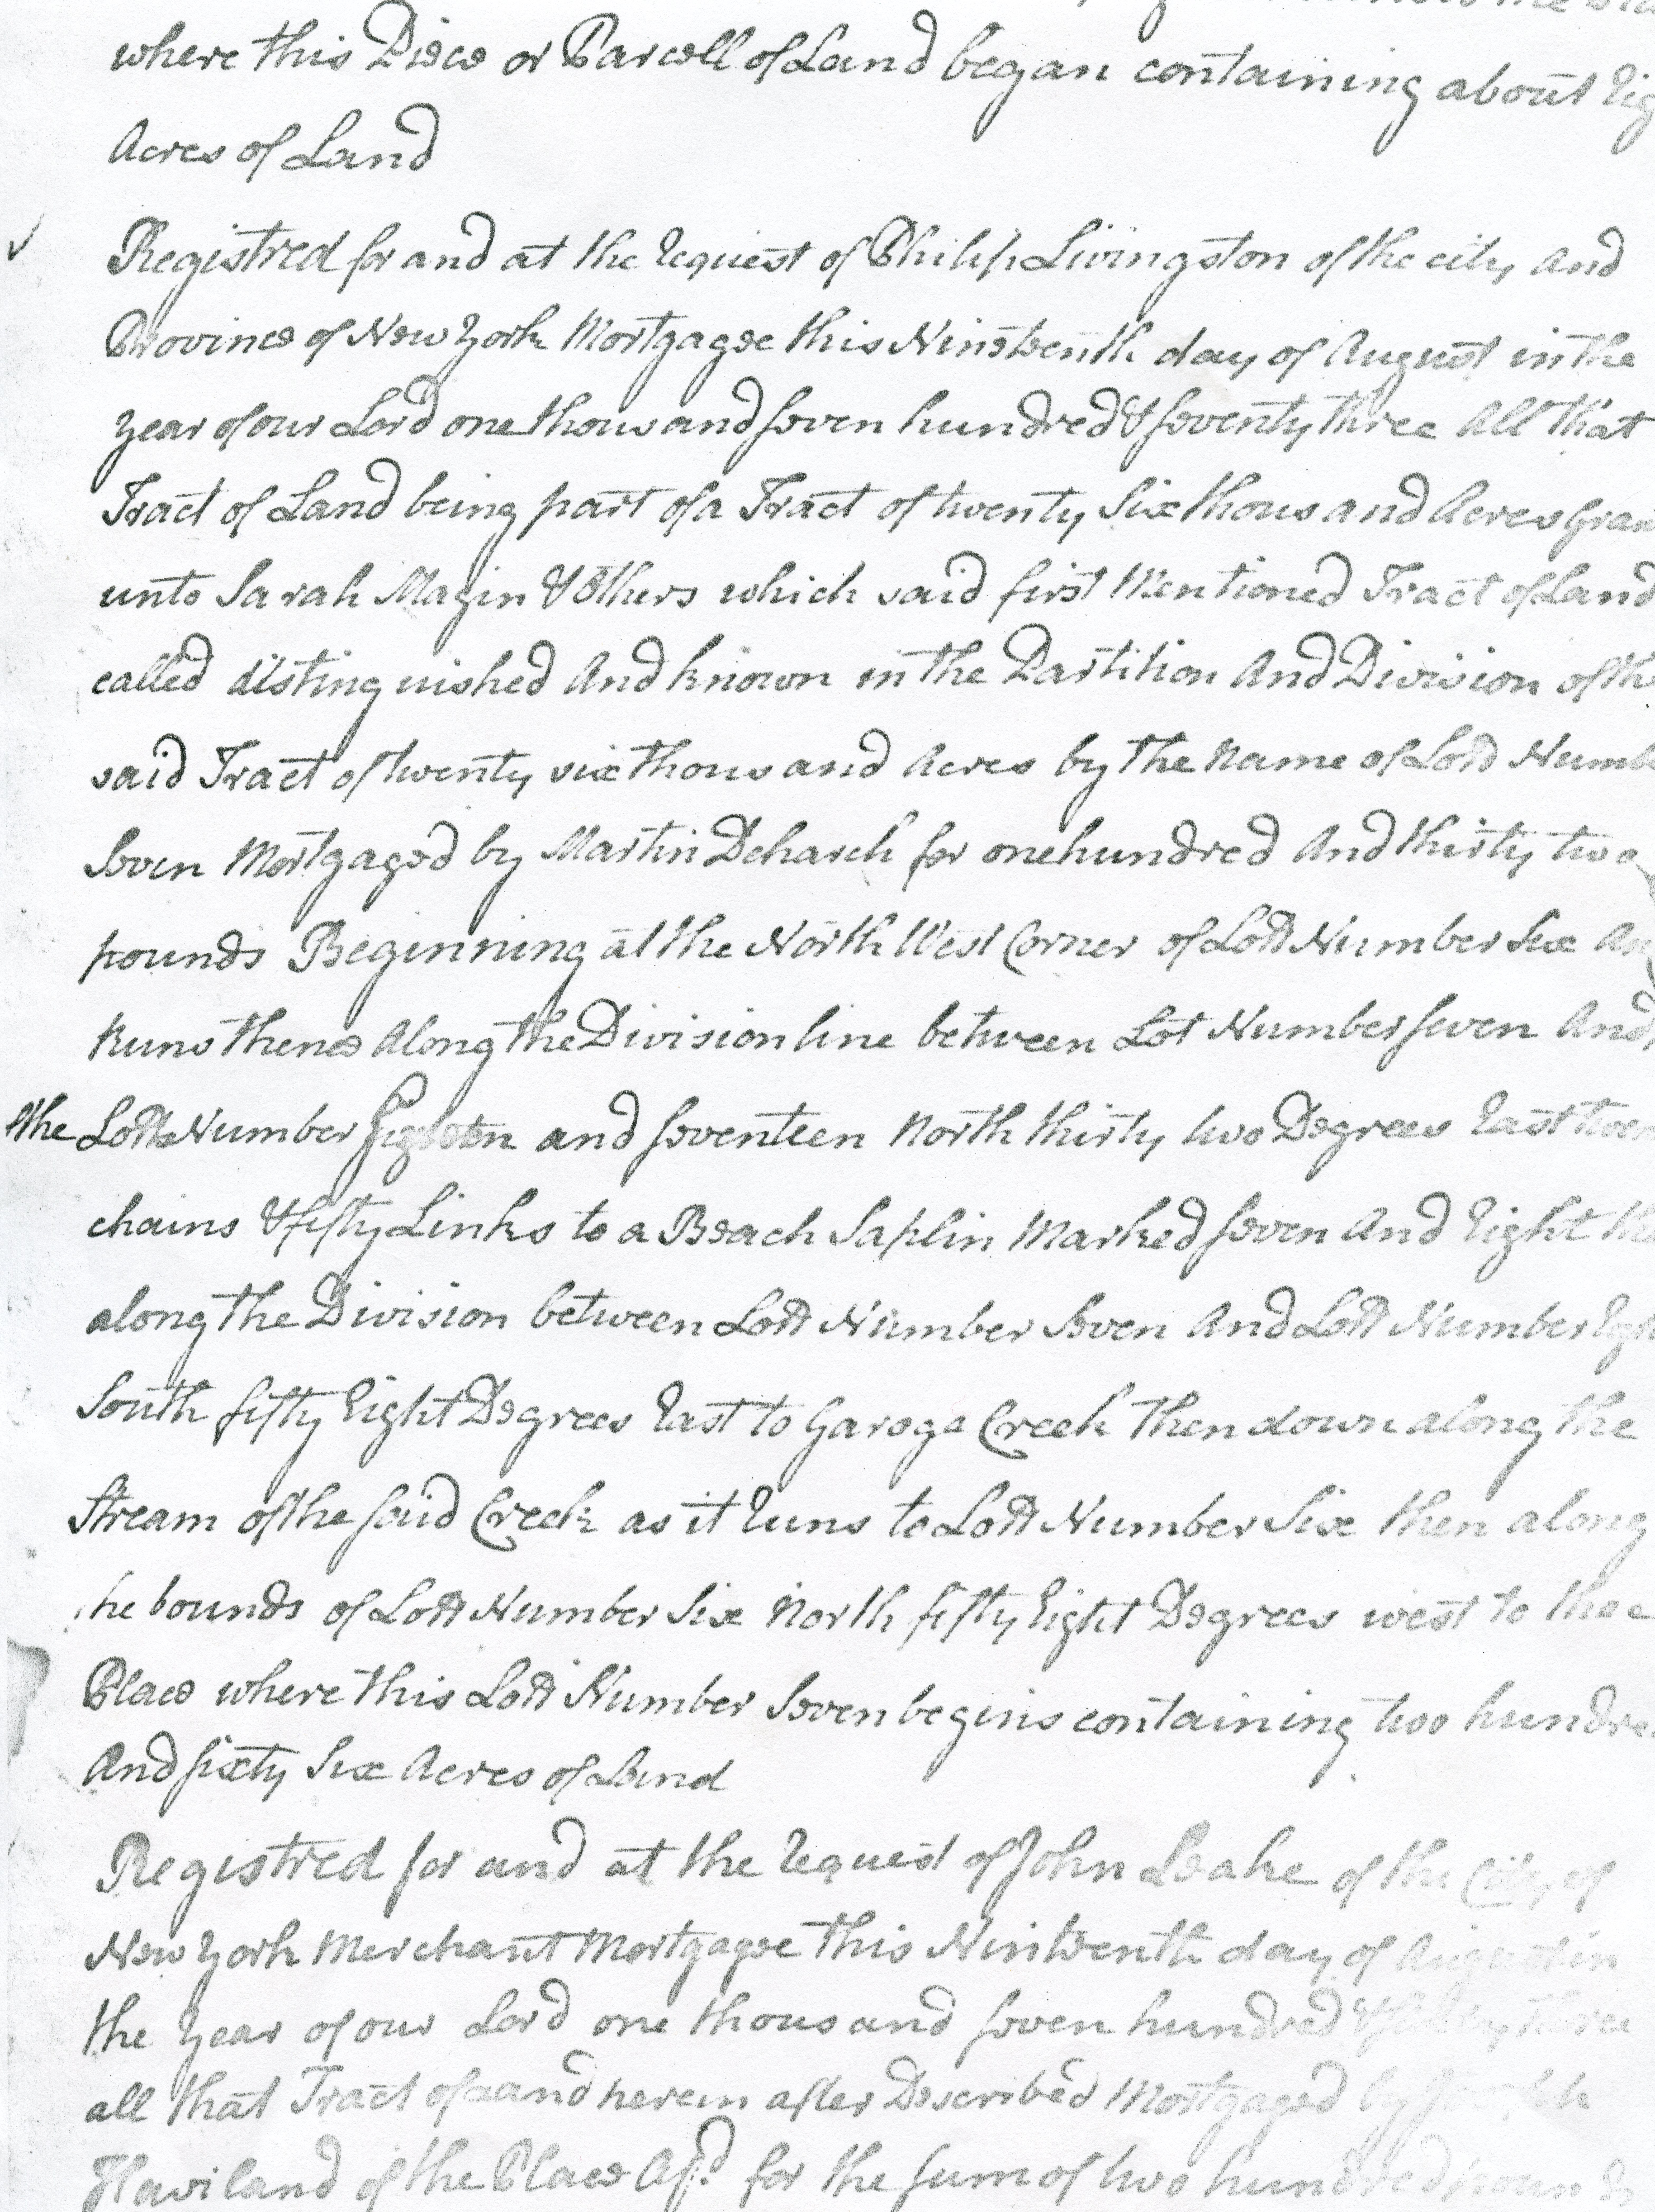 where this Piece or Parcell of Land began containing about Eig
Acres of Land
Registred for and at the Request of Philip Livingston of the city and
Province of New York Mortgagee this Nineteenth day of August in the
year of our Lord one thousand seven hundred & seventy three All that
Tract of Land being part of a Tract of twenty Six thousand Acres Gran
unto Sarah Magin & Others which said first Mentioned Tract of Land
called distinguished And known in the Partition And Division of th
said Tract of twenty six thousand Acres by the Name of Lott Numb
Seven Mortgaged by Martin Deharch for one hundred And thirty two
pounds Beginning at the North West Corner of Lott Number Six An
Runs thence Along the Division line between Lot Number seven And
the Lotts Number and seventeen North thirty two Degrees East twen
chains & fifty Links to a Beach Saplin Marked seven And Eight the
along the Division between Lott Number Seven And Lott Number Eigh
South fifty Eight Degrees East to Garoga Creek then down along the
Stream of the said Creek as it Runs to Lott Number Six then along
he bounds of Lott Number Six North fifty Eight Degrees west to thee
Place where this Lott Number Seven begins containing two hundre
And sixty Six Acres of Land
Registred for and at the Request of John Leake of the City of
New York Merchant Mortgagee this Ninteenth day of August in
the year of our Lord one thousand seven hundred & three
all that Tract of Land herein after Described Mortgaged by
Haviland of the Place Afd for the sum of two hundred pounds